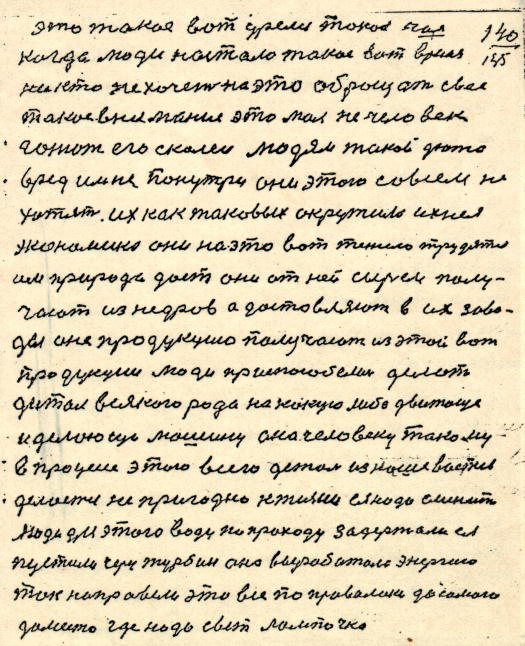 это такое вот время токое час
140
145
когда люди настало такое вот время
никто не хочет на это оброщат свае
такое внимание это мол не человек
его людям такое
вред им не понутри они этого совсем не
хотят. их как таковых окружила ихнея
экономика они на это вот трудятся
им природа дает они от ней сырем полу-
чают из недров а доставляют в их заво-
ды оне продукцию получают из этой вот
продукции люди приспособелис делоть
дитал всякого рода на какую либо двитоще
и делоющую машину она человеку такому
в процесе этого всего детал изношевается
делоется не пригодно к жизни ея надо сменить
люди для этого воду по проходу задержали ея
пустили чериз турбин оно выработала энергию
ток направели это все по провалоки до самого
до место где надо свет лампочка